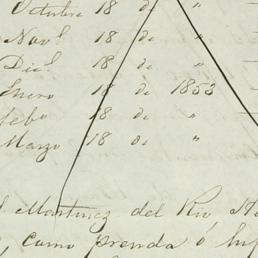 Octubre 18 de "
Nov.l 18 de "
Dic.l 18 de "
Enero 18 de 1853
Febo 18 de "
Marzo 18 de "
Martinez del Rio,
como prenda ó